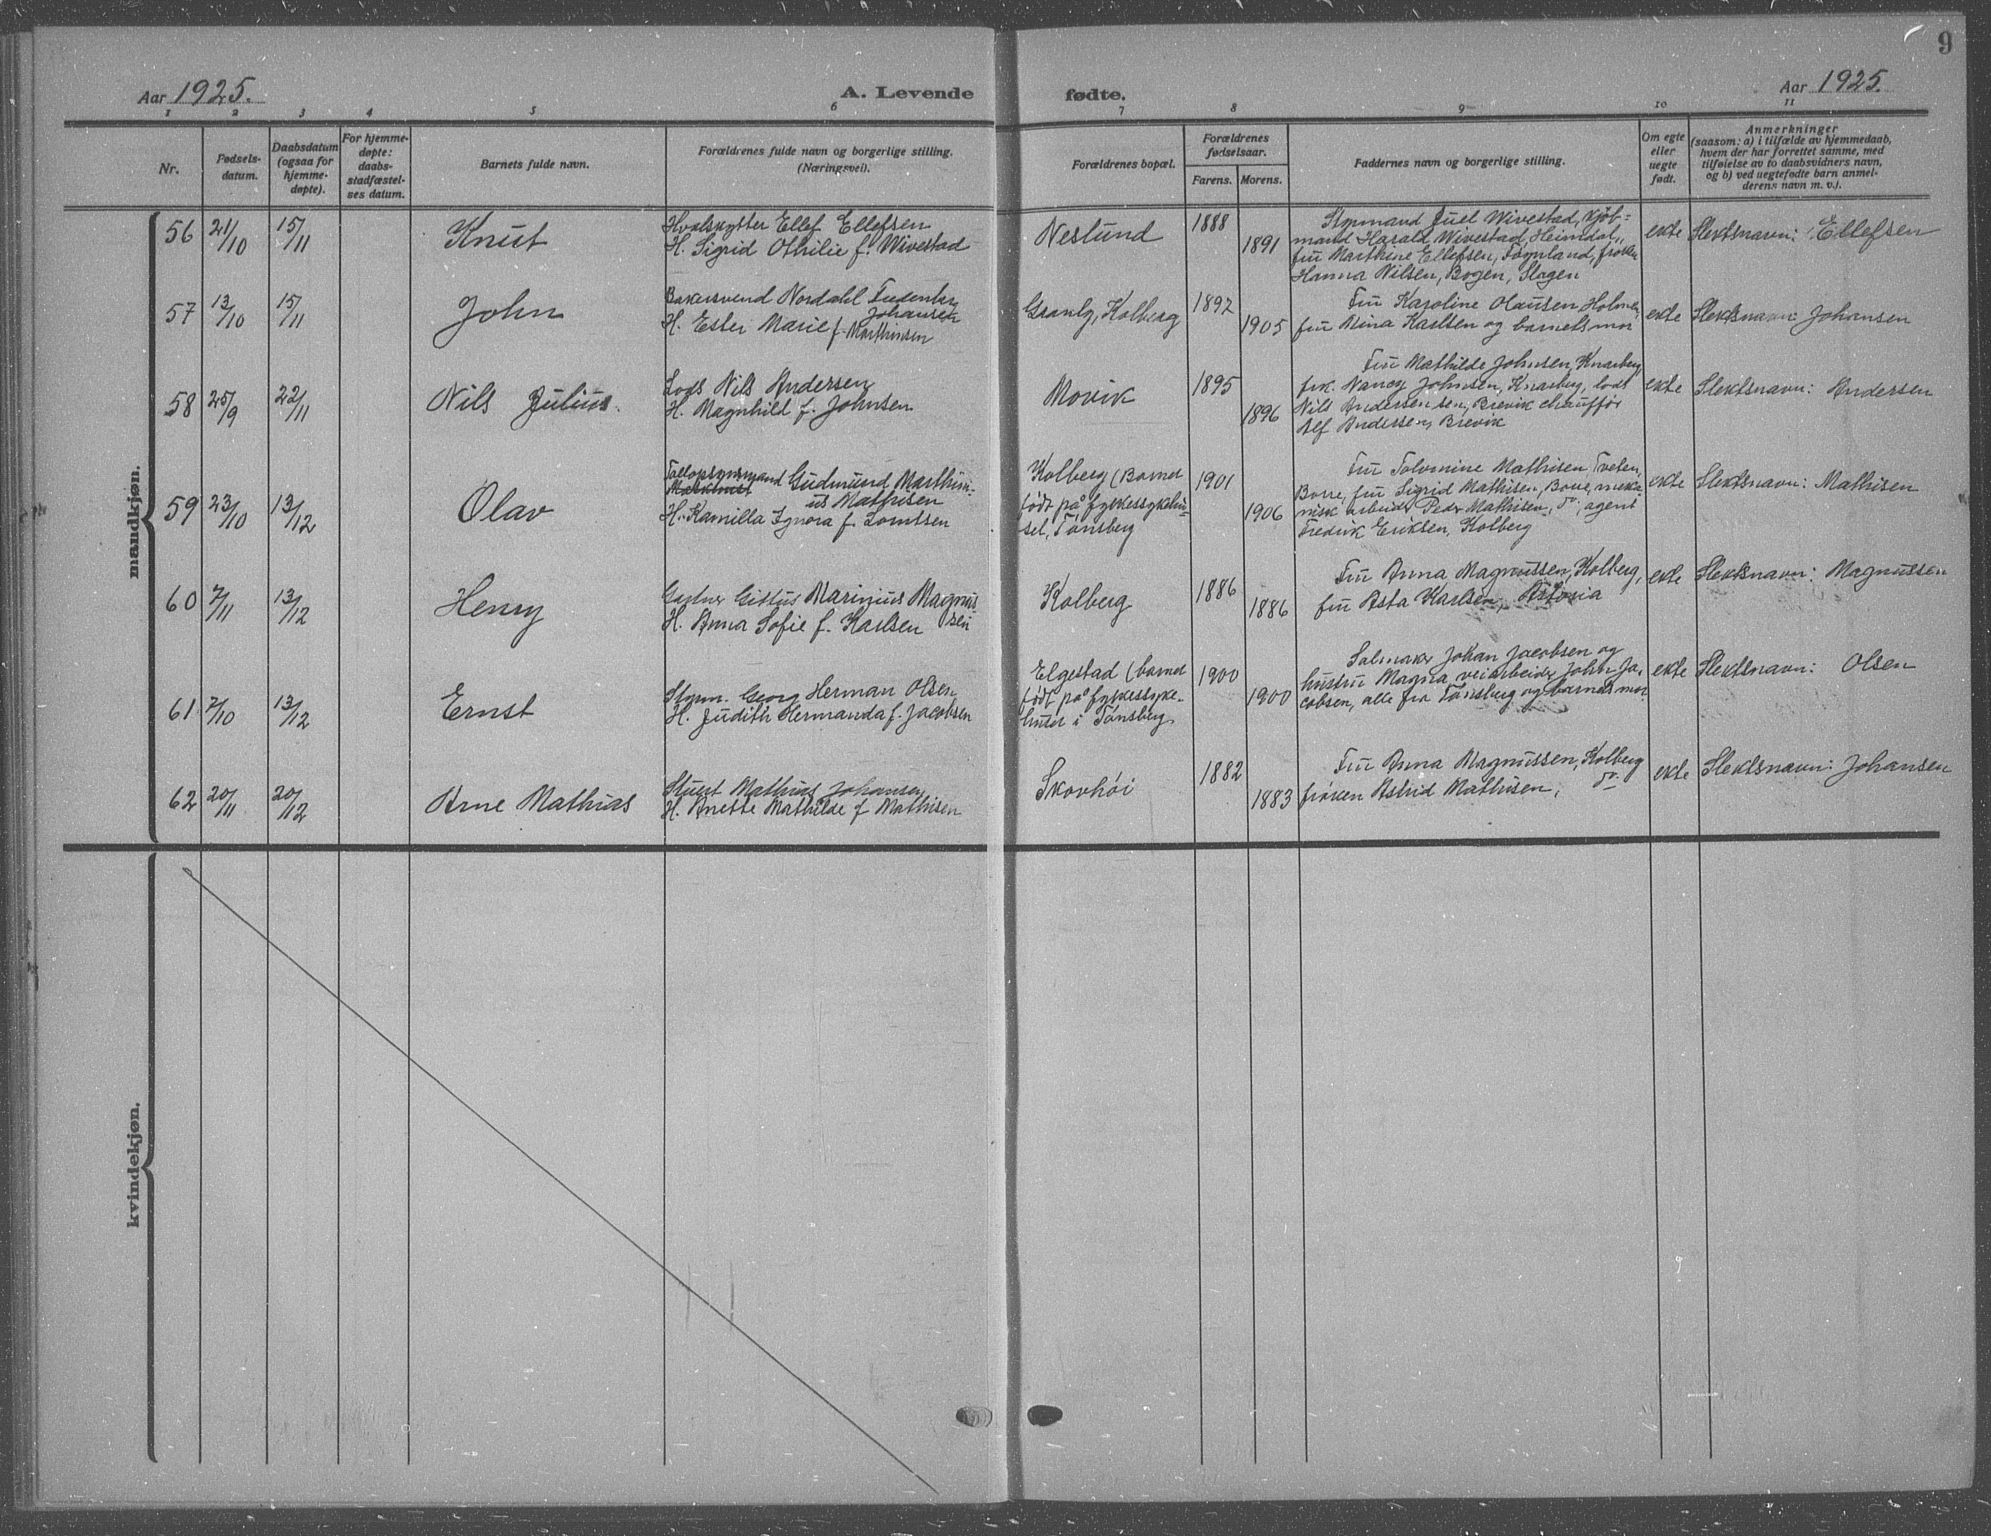 9
Aar 1925.
A. Levende fødte.
Aar 1925.
1 2 3 4 5 6 7 8 9 10 11
Nr.
Fødsels-
datum.
Daabsdatum
(ogsaa for
hjemme-
døpte).
For hjemme-
døpte:
daabs-
stadfæstel-
ses datum.
Barnets fulde navn.
Forældrenes fulde navn og borgerlige stilling.
(Næringsvei).
Forældrenes bopæl.
Forældrenes
fødselsaar.
Farens. Morens.
Faddernes navn og borgerlige stilling.
Om egte
eller
uegte
født.
Anmerkninger
(saasom: a) i tilfælde av hjemmedaab,
hvem der har forrettet samme, med
tilføielse av to daabsvidners navn,
og b) ved uegtefødte barn anmel-
derens navn m. v.).
mandkjøn.
56 21/10 15/11
Knut
Hvalskytter Ellef Ellefsen
H. Sigrid Othilie f. Wivestad
Neslund
1888
1891
Styrmand Juel Wivestad, kjøb-
mand Harald Wivestad, Heimdal,
fru Marthine Ellefsen, frøken
Hanna Nilsen, Bogen, Slagen
ekte
Slektsnavn: Ellefsen
57 13/10 15/11
John
Bakersvend Nordahl
Johansen
H. Ester Marie f. Marthinsen
Granly, Kolberg
1897
1905
Fru Karoline Olausen, Holmen,
fru Nina Karlsen og barnets mor
ekte
Slektsnavn: Johansen
58 25/9 22/11
Nils Julius
Lods Nils Andersen
H. Magnhild f. Johnsen
Movik
1895
1896
Fru Mathilde Johnsen, Knarberg,
frk. Nancy Johnsen, Knarberg, lods
Nils Andersen sen., Brevik chauffør
Alf Andersen, Brevik
ekte
Slektsnavn: Andersen
59 23/10 13/12
Olav
Gudmund Marthin-
ius Mathisen
H. Kamilla Ignora f. Lorntsen
Kolberg (Barnet
født på fylkessykehu-
set, Tønsberg
1901
1906
Fru Tolvmine Mathisen Tveten,
Borre, fru Sigrid Mathisen, Borre, meka-
nisk arbeider Peder Mathisen, do, agent
Fredrik Eriksen, Kolberg
ekte
Slektsnavn: Mathisen
60 7/11 13/12
Henry
Gartner Marinius Magnus-
sen
H. Anna Sofie f. Karlsen
Kolberg
1886
1886
Fru Anna Magnussen, Kolberg,
fru Asta Karlsen,
ekte
Slektsnavn: Magnussen
61 7/10 13/12
Ernst
Styrm. Georg Herman Olsen
H. Judith Hermanda f. Jacobsen
Elgestad (barnet
født på fylkessyke-
huset i Tønsberg.
1900
1900
Salmaker Johan Jacobsen og
hustru Magna veiarbeider John Ja-
cobsen, alle fra Tønsberg og barnets mor
ekte
Slektsnavn: Olsen
62 20/11 20/12
Arne Mathias
Stuert Mathias Johansen
H. Anette Mathilde f Mathisen
Skovhøi
1882
1883
Fru Anna Magnussen, Kolberg
frøken Astrid Mathisen, do
ekte
Slektsnavn: Johansen
kvindekjøn.